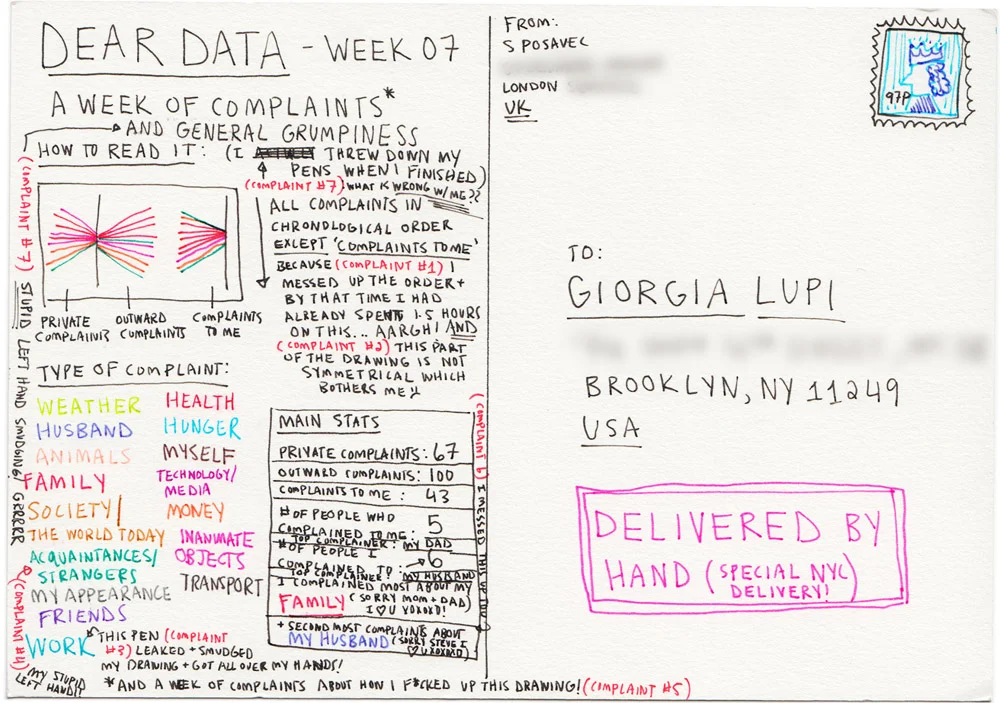 DEAR DATA - WEEK 07
A WEEK OF COMPLAINTS*
AND GENERAL GRUMPINESS
HOW TO READ IT: (I THREW DOWN MY
PENS WHEN I FINISHED)
(COMPLAINT #7) WHAT IS WRONG W/ME??
PRIVATE COMPLAINTS
OUTWARD COMPLAINTS
COMPLAINTS TO ME
ALL COMPLAINTS IN
CHRONOLOGICAL ORDER
EXCEPT 'COMPLAINTS TO ME'
BECAUSE (COMPLAINT #1) I
MESSED UP THE ORDER +
BY THAT TIME I HAD
ALREADY SPENT 1.5 HOURS
ON THIS... AARGH! AND
(COMPLAINT #2) THIS PART
OF THE DRAWING IS NOT
SYMMETRICAL WHICH
BOTHERS ME
(COMPLAINT #7) STUPID LEFT HAND SMUDGING! GRRRR
TYPE OF COMPLAINT:
WEATHER
HUSBAND
ANIMALS
FAMILY
SOCIETY/
THE WORLD TODAY
ACQUAINTANCES/
STRANGERS
MY APPEARANCE
FRIENDS
WORK
HEALTH
HUNGER
MYSELF
TECHNOLOGY/
MEDIA
MONEY
INANIMATE
OBJECTS
TRANSPORT
THIS PEN (COMPLAINT
#3) LEAKED + SMUDGED
MY DRAWING + GOT ALL OVER MY HANDS!
(COMPLAINT #4)
MY STUPID
LEFT HAND!!
MAIN STATS
PRIVATE COMPLAINTS: 67
OUTWARD COMPLAINTS: 100
COMPLAINTS TO ME: 43
# OF PEOPLE WHO
COMPLAINED TO ME: 5
TOP COMPLAINER: MY DAD
# OF PEOPLE I
COMPLAINED TO: → 6
TOP COMPLAINER: MY HUSBAND
I COMPLAINED MOST ABOUT MY
FAMILY (SORRY MOM + DAD)
I ♡ U XOXOXO!
+ SECOND MOST COMPLAINTS ABOUT
MY HUSBAND (SORRY STEVE I
♡ U XOXOXO)
(COMPLAINT 6) I MESSED THIS UP TOO
*AND A WEEK OF COMPLAINTS ABOUT HOW I F*CKED UP THIS DRAWING! (COMPLAINT #5)
FROM:
S POSAVEC
LONDON
UK
97P
TO:
GIORGIA LUPI
BROOKLYN, NY 11249
USA
DELIVERED BY
HAND (SPECIAL NYC
DELIVERY!)